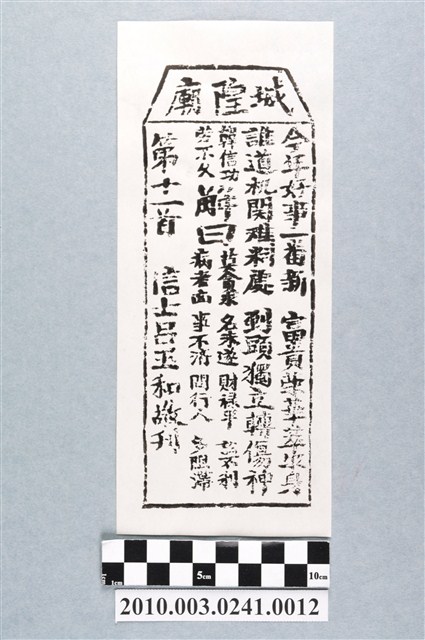 城隍廟
今年好事一番新 富貴榮華萃汝身
誰道机関难料處 到頭獨立轉傷神
韓信功勞不久
解曰
貪求 名未遂 財祿平 訟不利
病者凶 事不濟 問行人 多阻滯
第十一首 信士呂玉和敬刊
1cm 5cm 10cm
2010.003.0241.0012